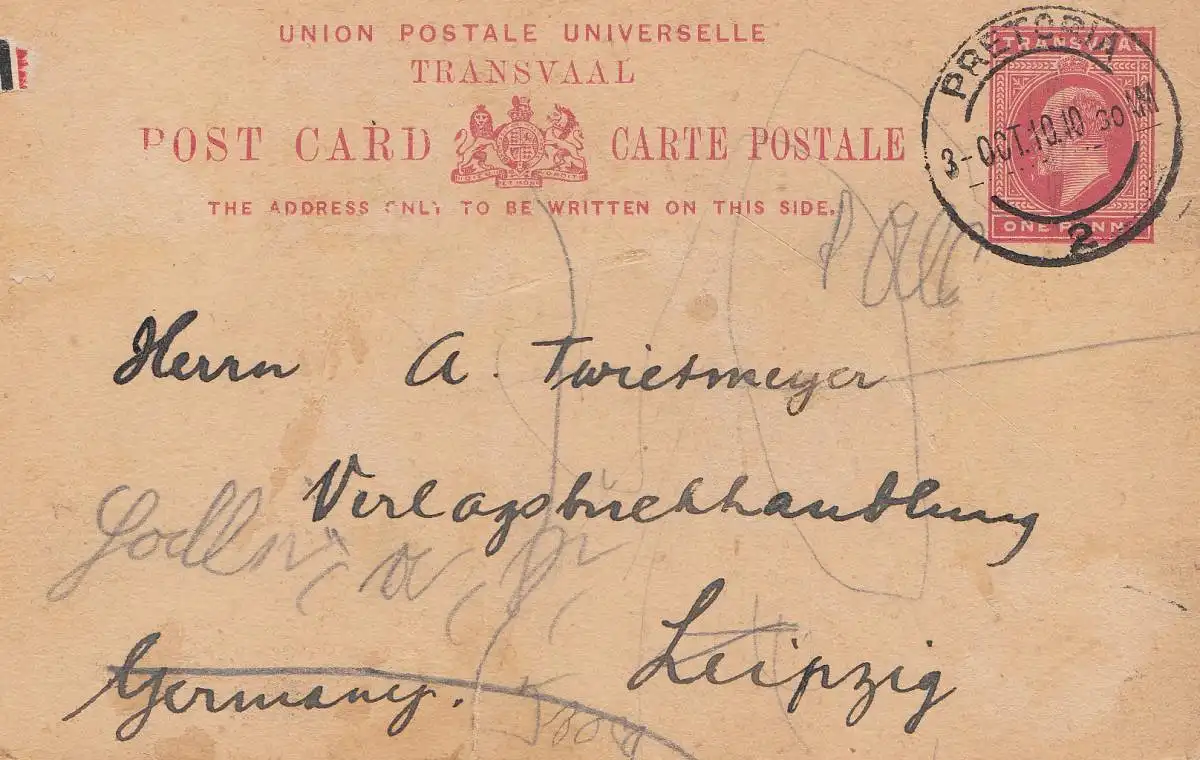 UNION POSTALE UNIVERSELLE
TRANSVAAL
POST CARD CARTE POSTALE
THE ADDRESS ONLY TO BE WRITTEN ON THIS SIDE.
TRANSVAAL
ONE PENNY
PRETORIA
3-OCT.10.10 30AM
2
Herrn A. Twietmeyer
Verlagsbuchhandlung
Leipzig
Germany.